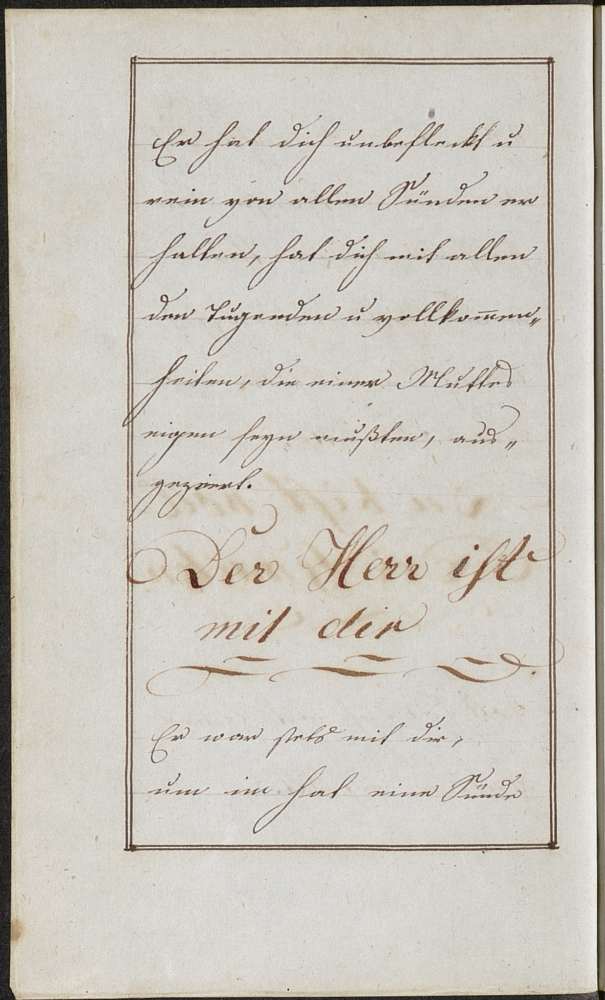 Er hat dich unbefleckt u
rein von allen Sünden er
halten, hat dich mit allen
den Tugenden u vollkom̅en„
heiten, die einer Mutter
eigen seyn mußten, aus„
geziert.
Der Herr ist
mit dir
Er war stets mit dir,
hat eine Sünde